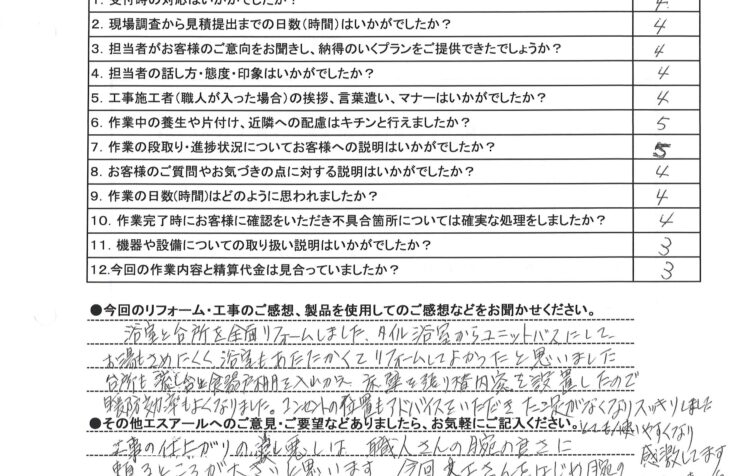 1. 受付時の対応はいかがでしたか？ 4
2. 現場調査から見積提出までの日数(時間)はいかがでしたか？ 4
3. 担当者がお客様のご意向をお聞きし、納得のいくプランをご提供できたでしょうか？ 4
4. 担当者の話し方・態度・印象はいかがでしたか？ 4
5. 工事施工者(職人が入った場合)の挨拶、言葉遣い、マナーはいかがでしたか？ 4
6. 作業中の養生や片付け、近隣への配慮はキチンと行えましたか？ 5
7. 作業の段取り・進捗状況についてお客様への説明はいかがでしたか？ 5
8. お客様のご質問やお気づきの点に対する説明はいかがでしたか？ 4
9. 作業の日数(時間)はどのように思われましたか？ 4
10. 作業完了時にお客様に確認をいただき不具合箇所については確実な処理をしましたか？ 4
11. 機器や設備についての取り扱い説明はいかがでしたか？ 3
12.今回の作業内容と精算代金は見合っていましたか？ 3
●今回のリフォーム・工事のご感想、製品を使用してのご感想などをお聞かせください。
浴室と台所を全面リフォームしました、タイル浴室からユニットバスにして
お湯もさめにくく浴室もあたたかくてリフォームしてよかったと思いました
台所も 床壁を張り 内窓を設置したので
暖房効率もよくなりました。コンセントの位置もアドバイスをいただき たこ足がなくなりスッキリしました
とても使いやすくなり
感激してます
●その他エスアールへのご意見・ご要望などありましたら、お気軽にご記入ください。
工事の仕上がりの 職人さんの腕の良さに
頼るところが大きいと思います 今回 さんをはじめ腕